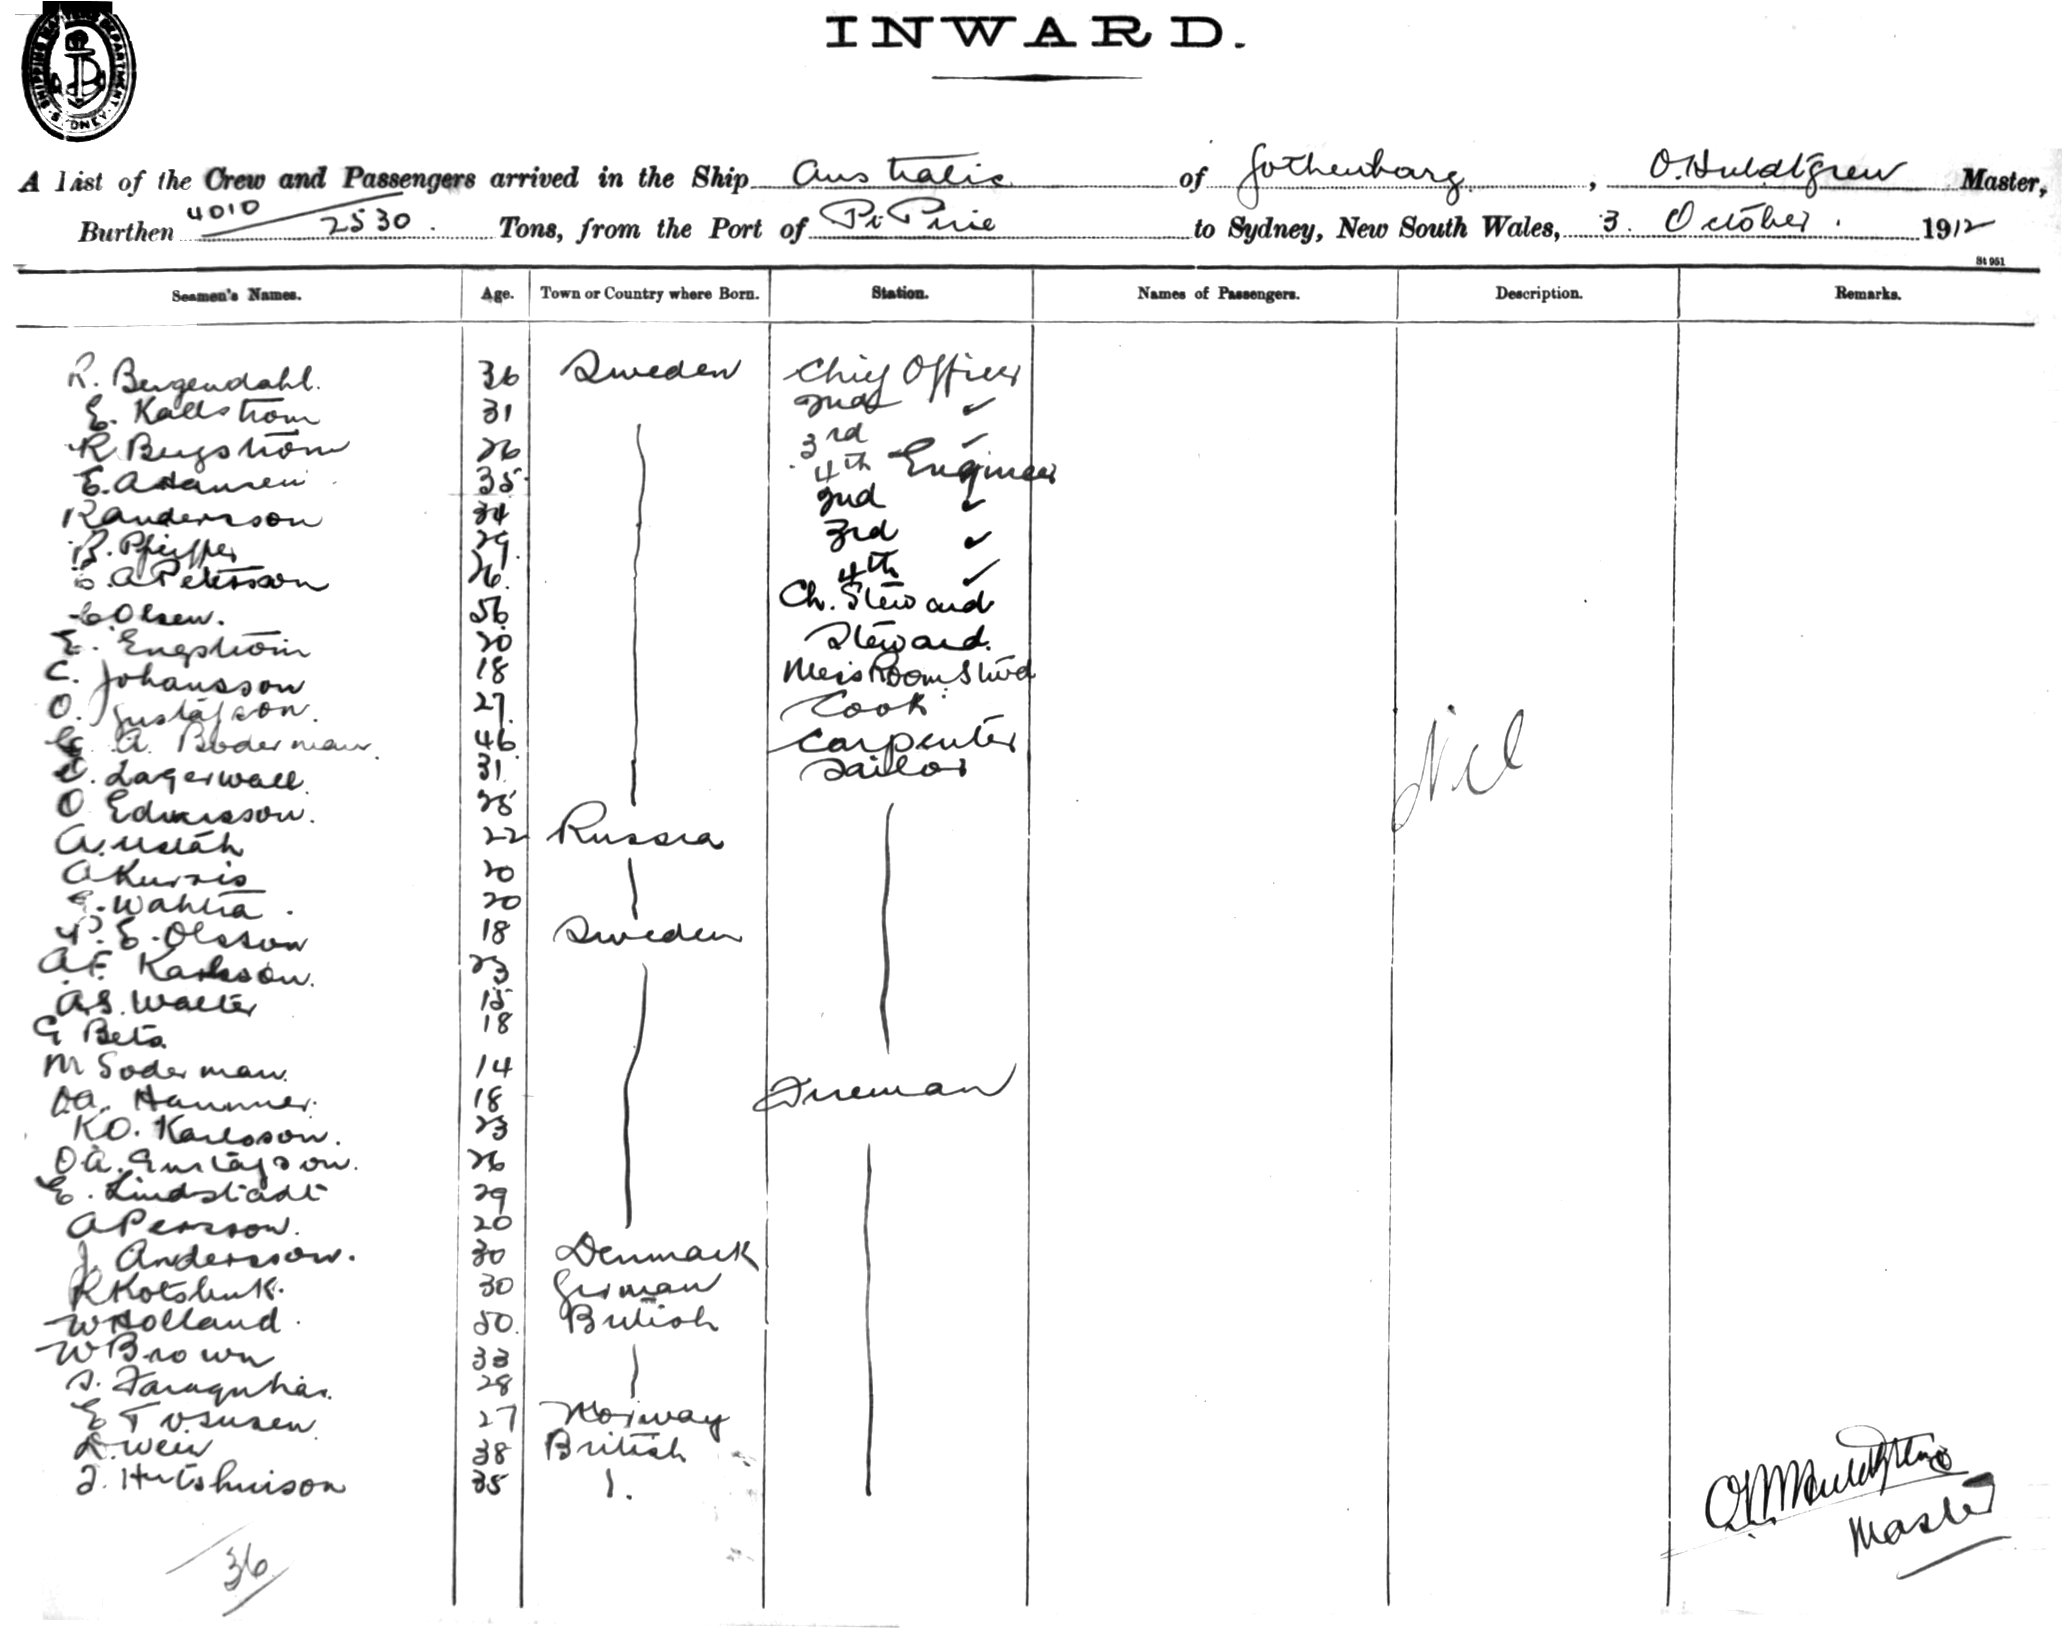 SHIPPING MASTERS DEPARTMENT SYDNEY
INWARD.
A list of the Crew and Passengers arrived in the Ship Australic of Gothenburg, O. Huldtgren Master,
Burthen 4010 2530. Tons, from the Port of Pt Pirie to Sydney, New South Wales, 3. October. 1912
St 951
Seamen's Names. Age. Town or Country where Born. Station. Names of Passengers. Description. Remarks.
R. Bergendahl. 36 Sweden Chief Officer
E. Kallstrom 31 2nd ✓
R Bergstrom 26 3rd ✓
E. A Hansen 35 4th Engineer
R Andersson 34 2nd ✓
R. Pfeiffer 29. 3rd ✓
C. A Petersson 26. 4th ✓
C Olsen. 56 Ch. Steward
E. Engstrom 20 Steward.
C. Johansson 18 Mess Room Stwd
O. Gustafson. 27. Cook
A Boderman. 46 Carpenter
Lagerwall 31. Sailor
O Edmisson. 25
A. 22 Russia
A Kursis 20
Wahlra. 20
P. E. Olsson 18 Sweden
A F. Karlsson. 23
A S. Walter 15
G Beta 18
M Soderman. 14
A. Hammer. 18 Fireman
K O. Karlsson. 23
O A. Gustafson. 26
E. Lindstadt 29
A Persson. 20
J. Andersson. 30 Denmark
R Kotshuk. 30 German
W Holland. 50. British
W Brown 33
Farquhar. 28
E T 27 Norway
Weir 38 British
J. Hutshuison 35 ".
Nil
36
O. Huldtgren
Master